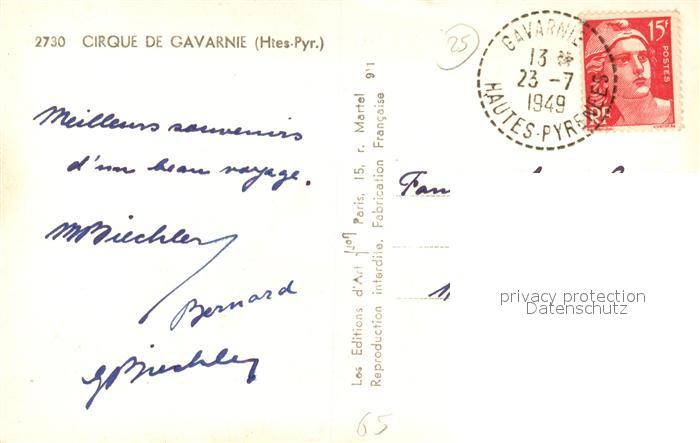 2730 CIRQUE DE GAVARNIE (Htes-Pyr.)
Meilleurs souvenirs
d'un beau voyage.
MBiechler
Bernard
GBiechler
Les Editions d'Art Paris, 15, r. Martel 9'1
Reproduction interdite. Fabrication Française
25
GAVARNIE
13
23 -7
1949
HAUTES-PYRENEES
15F
POSTES
RF
Fam
privacy protection
Datenschutz
65